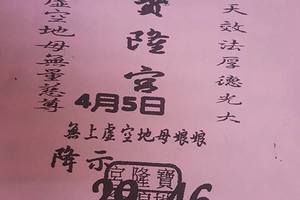 天效法厚德光大
寶隆宮
虛空地母無量慈尊
4月5日
無上虛空地母娘娘
降示
宮隆寶
2016